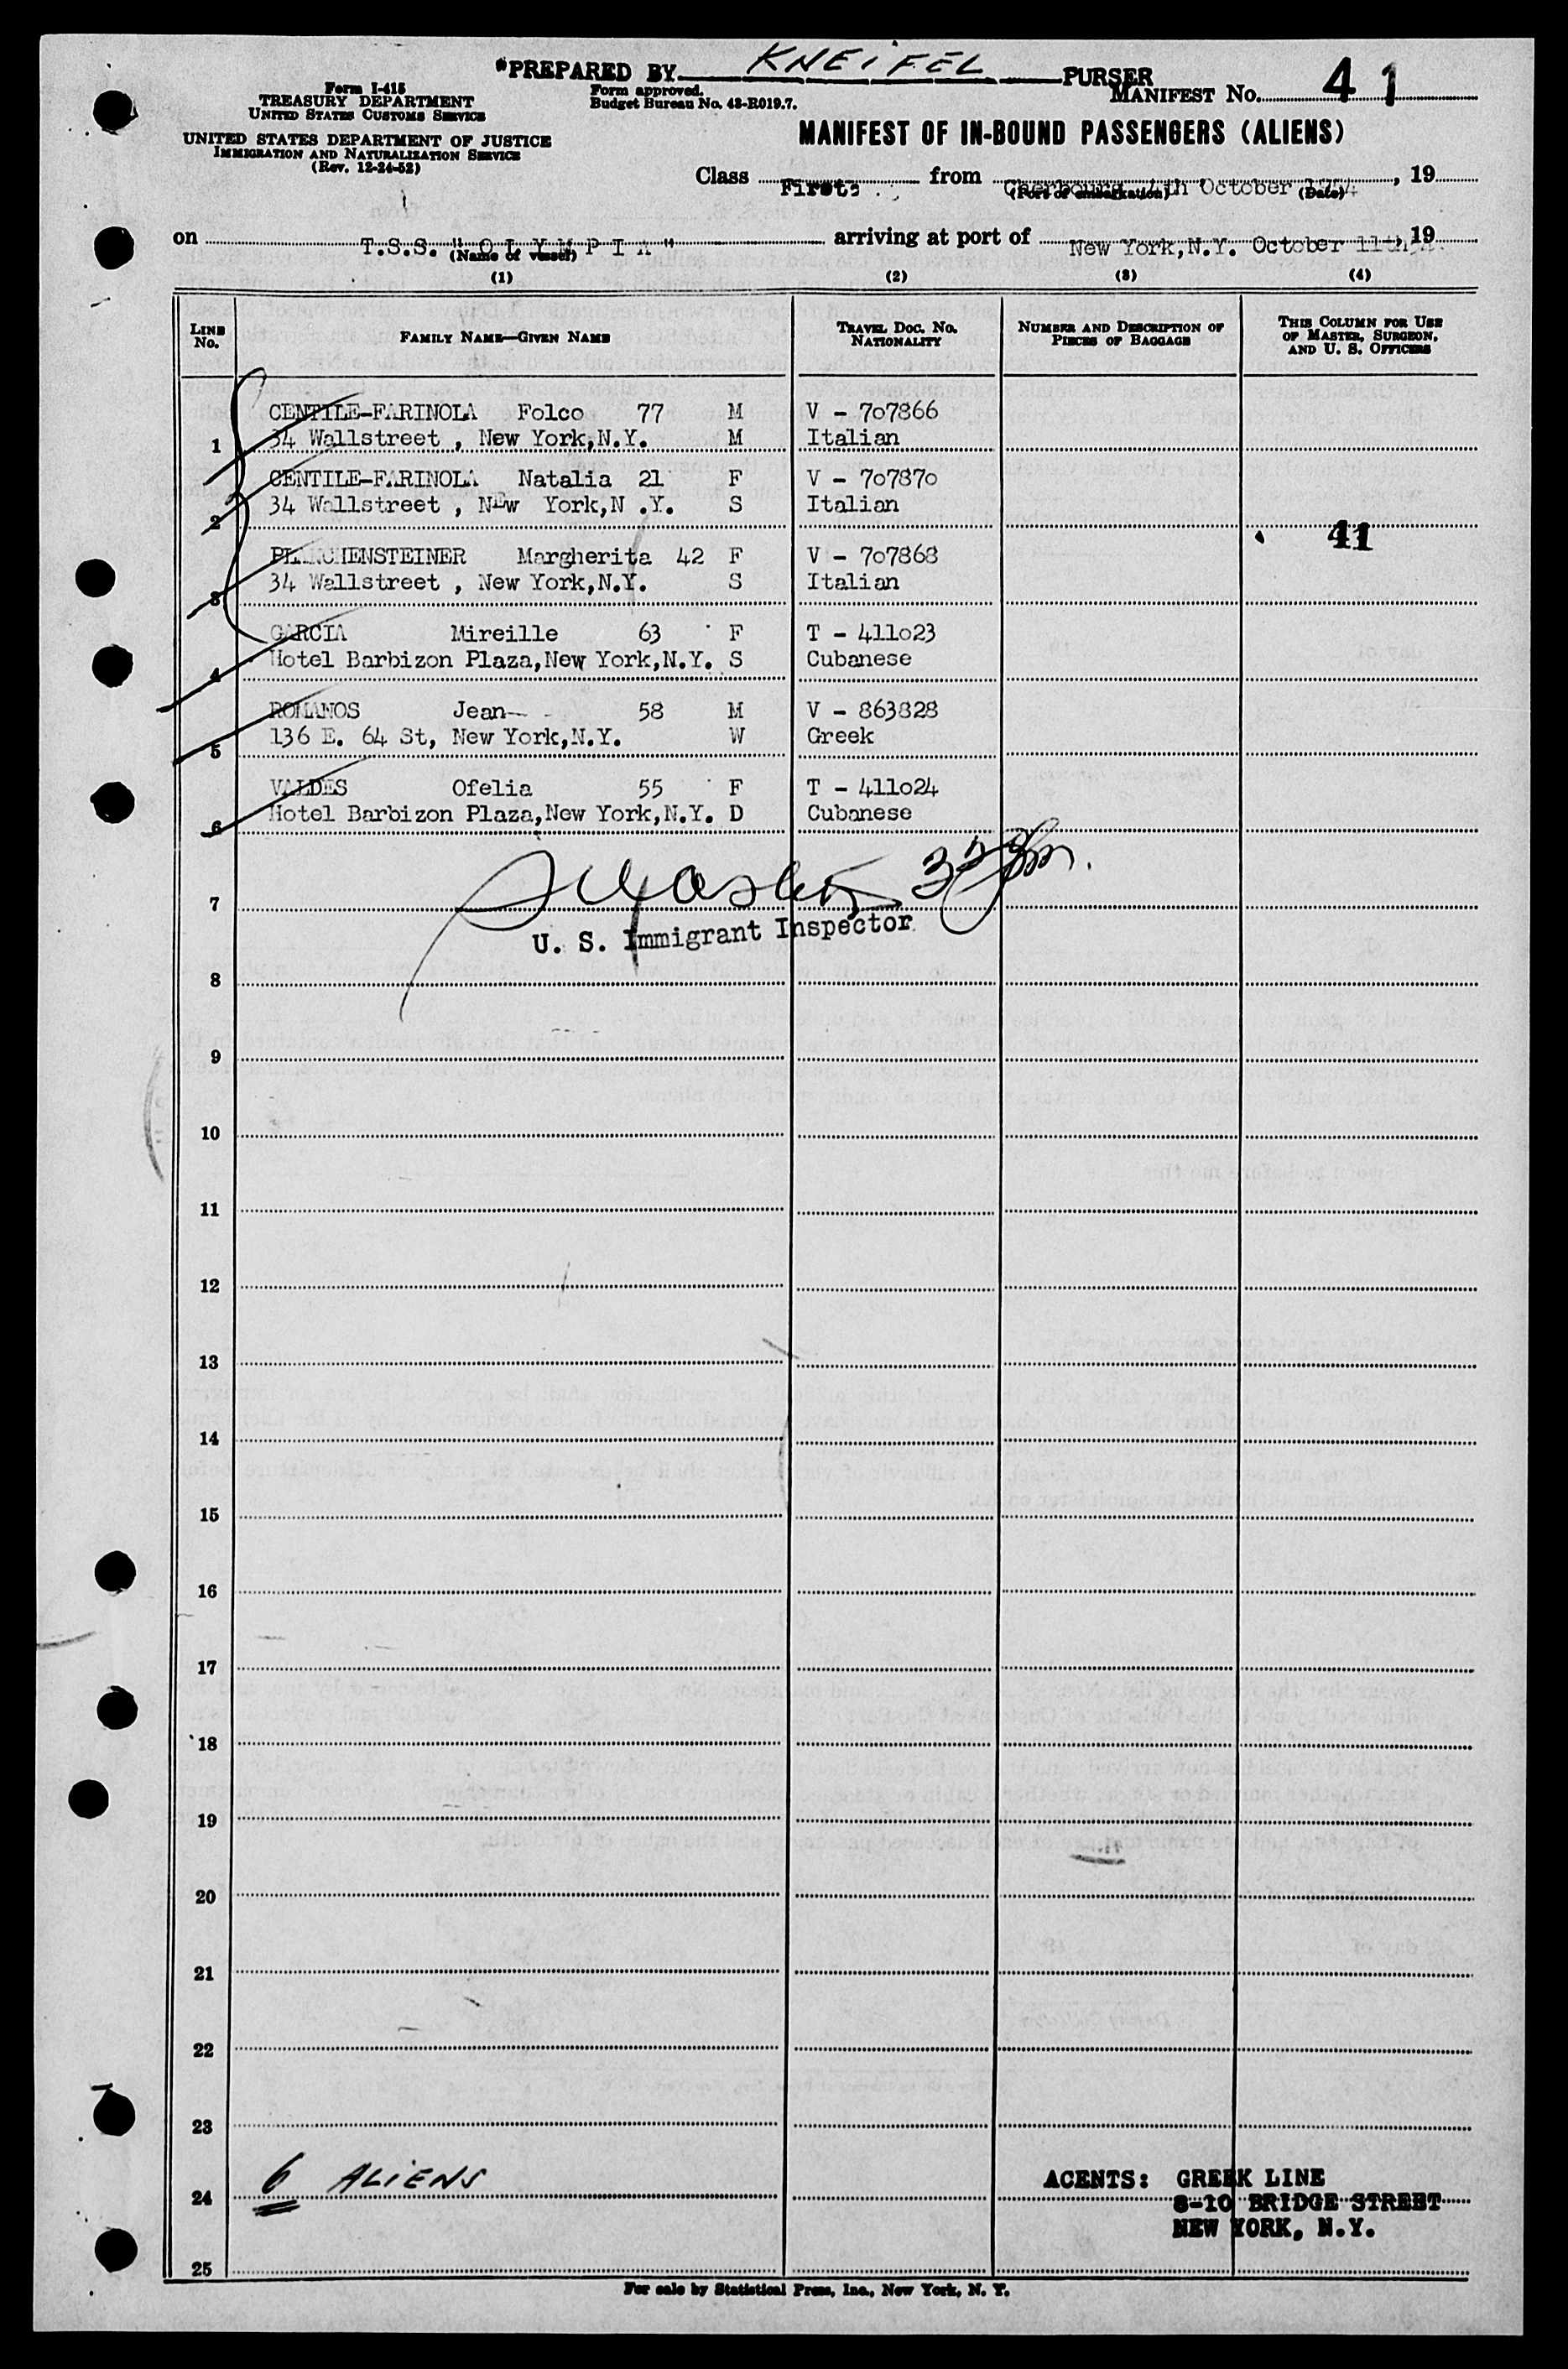 "PREPARED BY KNEIFEL PURSER
Form I-415
TREASURY DEPARTMENT
UNITED STATES CUSTOMS SERVICE
UNITED STATES DEPARTMENT OF JUSTICE
IMMIGRATION AND NATURALIZATION SERVICE
(Rev. 12-24-52)
Form approved.
Budget Bureau No. 43-R019.7.
MANIFEST No. 41
MANIFEST OF IN-BOUND PASSENGERS (ALIENS)
Class First from Cherbourg, 4th October 1954, 19
(Port of embarkation) (Date)
on T.S.S. "OLYMPIA" arriving at port of New York,N.Y. October 11th, 19
(Name of vessel)
(1) (2) (3) (4)
LINE No. FAMILY NAME—GIVEN NAME TRAVEL DOC. No. NATIONALITY NUMBER AND DESCRIPTION OF PIECES OF BAGGAGE THIS COLUMN FOR USE OF MASTER, SURGEON, AND U. S. OFFICERS
CENTILE-FARINOLA Folco 77 M V - 707866
1 34 Wallstreet , New York,N.Y. M Italian
CENTILE-FARINOLA Natalia 21 F V - 707870
2 34 Wallstreet , NEw York,N .Y. S Italian
41
Margherita 42 F V - 707868
3 34 Wallstreet , New York,N.Y. S Italian
GARCIA Mireille 63 F T - 411023
4 Hotel Barbizon Plaza,New York,N.Y. S Cubanese
ROMANOS Jean 58 M V - 863828
5 136 E. 64 St, New York,N.Y. W Greek
VALDES Ofelia 55 F T - 411024
6 Hotel Barbizon Plaza,New York,N.Y. D Cubanese
7
U. S. Immigrant Inspector
8
9
10
11
12
13
14
15
16
17
18
19
20
21
22
23
24 6 ALIENS
AGENTS: GREEK LINE
8-10 BRIDGE STREET
NEW YORK, N.Y.
25
For sale by Statistical Press, Inc., New York, N. Y.